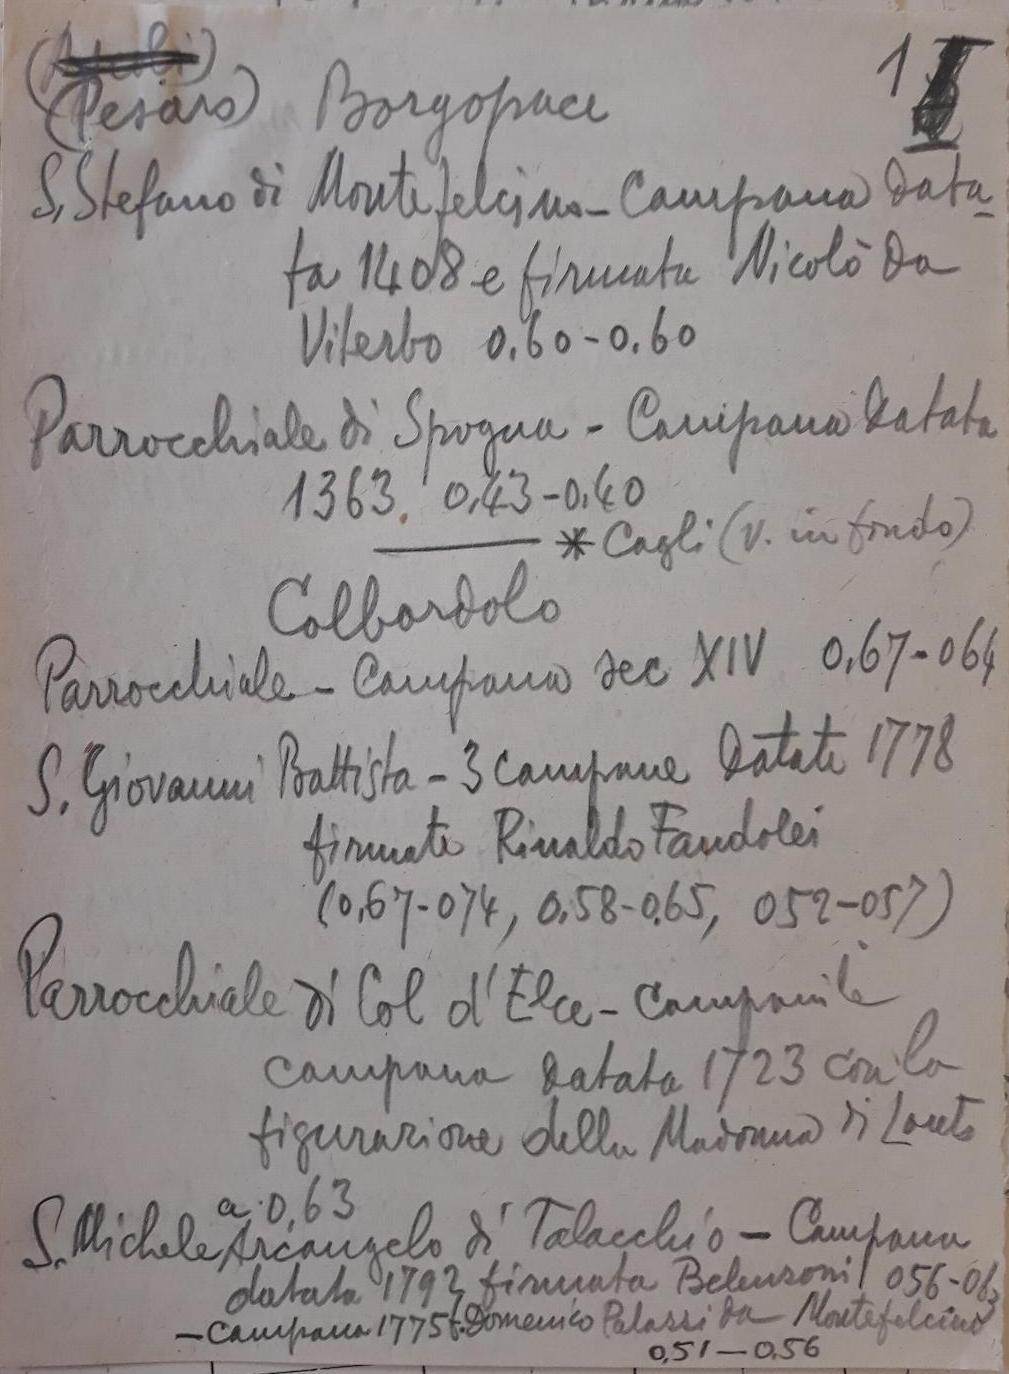 (Pesaro) Borgopace 1
S. Stefano di Montefelcino - Campana data-
ta 1408 e firmata Nicolò da
Viterbo 0,60-0,60
Parrocchiale di Spogna - Campana datata
1363. 0,43-0,40
* Cagli (v. in fondo)
Colbordolo
Parrocchiale - Campana sec XIV 0,67-064
S. Giovanni Battista - 3 campane datate 1778
firmate Rinaldo Fandolei
(0,67-074, 0,58-0,65, 052-057)
Parrocchiale di Col d'Elce - Campanile
campana datata 1723 con la
figurazione della Madonna di Loreto
a. 0,63
S. Michele Arcangelo di Talacchio - Campana
datata 1792 firmata 056-063
- campana 1775 f. Domenico da Montefelcino
0,51-0,56